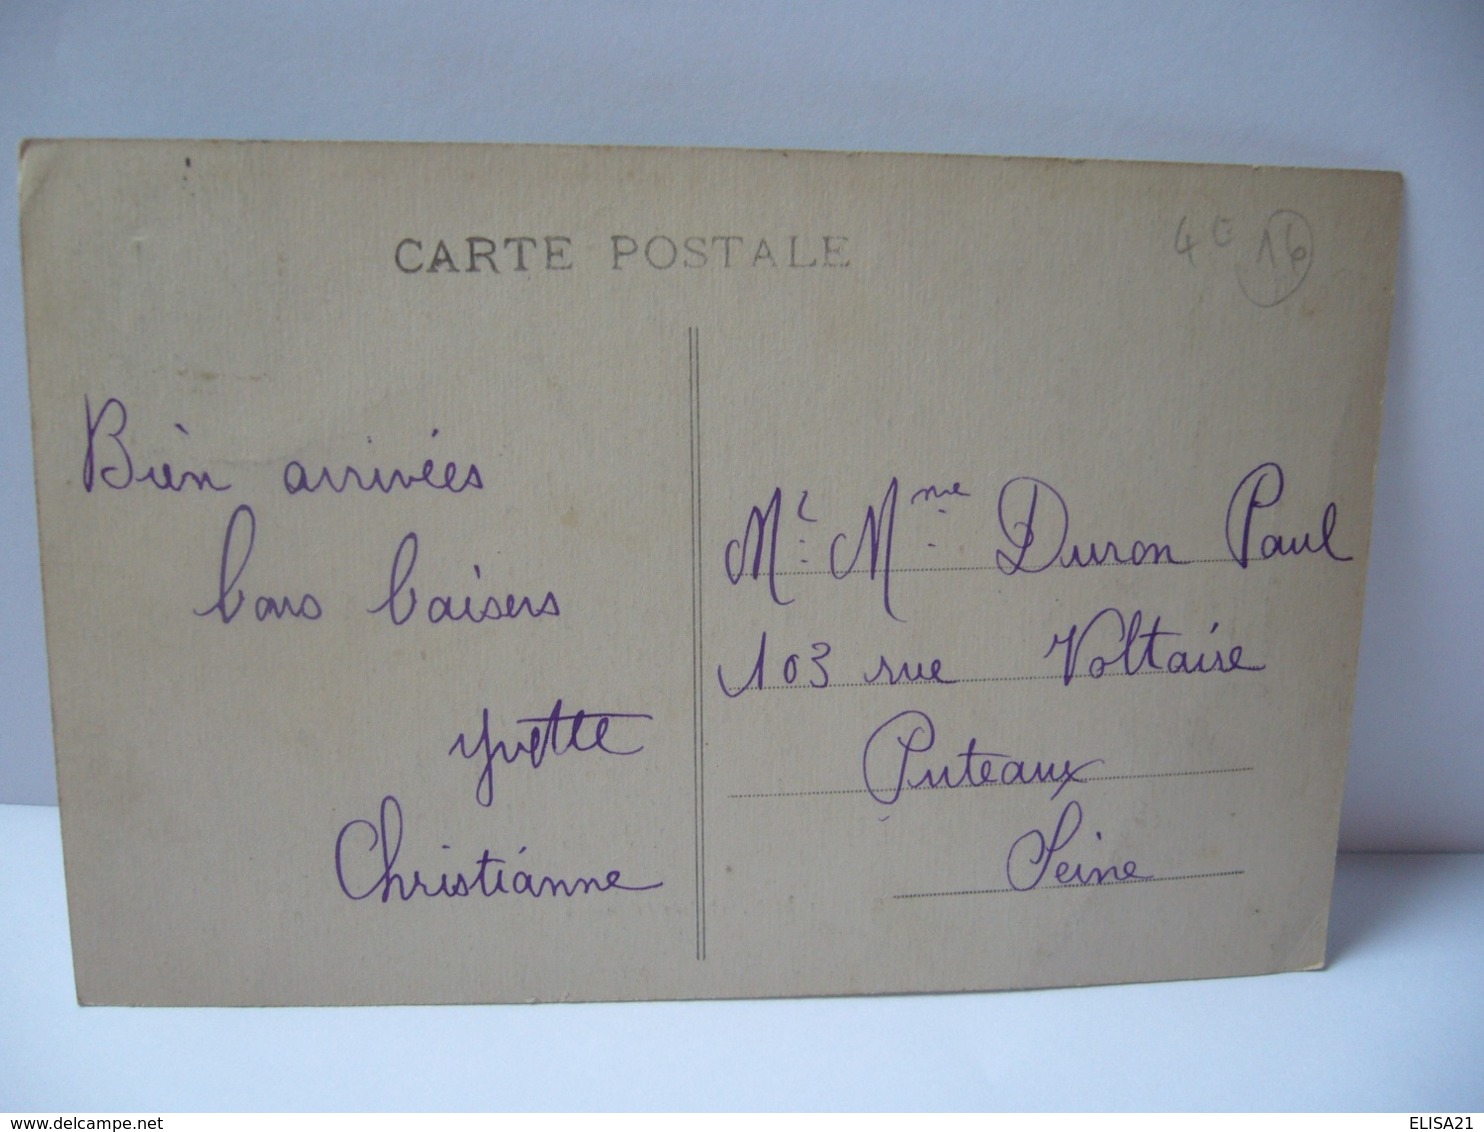 CARTE POSTALE
4€ 16
Bien arrivées
bons baisers
Yvette
Christianne
Mr. Mme. Duron Paul
103 rue Voltaire
Puteaux
Seine
www.delcampe.net
ELISA21